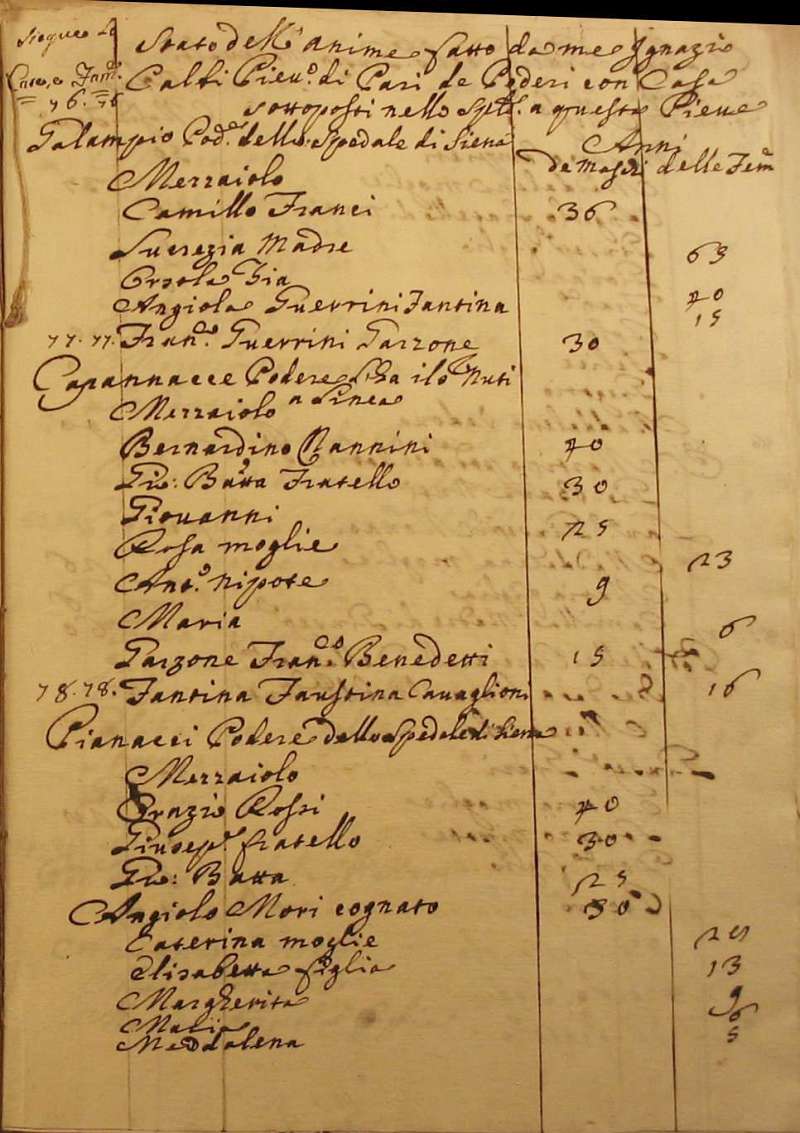 Stato dell'anime fatto da me Ignazio
Calfi Piev.o di Pari de Poderi con Casa
76. 76
sottoposti nello Sp.le a questa Pieve
Galampio Pod.e dello Spedale di Siena
Anni
de Maschi delle Fem.e
Mezzaiolo
Camillo Franci 36
Lucrezia Madre 63
Orsola Zia 70
Angiola Guerrini Fantina 15
77. 77. Fran.co Guerrini Garzone 30
Capannacce Podere
Mezzaiolo a Linea
Bernardino Nannini 40
Gio: Batta Fratello 30
Giovanni 25
Rosa moglie 23
Ant.o Nipote 9
Maria 6
Garzone Fran.co Benedetti 15
78. 78. Fantina Faustina Cavaglioni 16
Pianacci Podere dello Spedale di Siena
Mezzaiolo
Orazio Rossi 40
Giusep.e fratello 30
Gio: Batta 25
Angiolo Mori cognato 30
Caterina moglie
Elisabetta figlia 13
Margherita 9
Maria 6
Maddalena 5